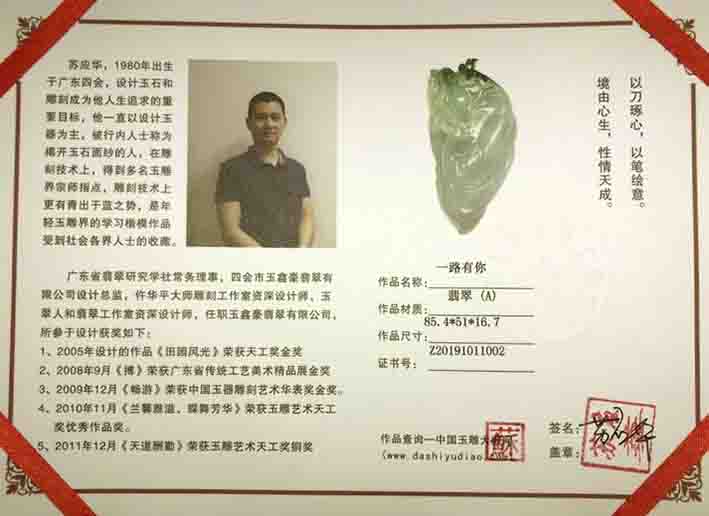 苏应华，1980年出生
于广东四会，设计玉石和
雕刻成为他人生追求的重
要目标，他一直以设计玉
器为主，被行内人士称为
揭开玉石面纱的人，在雕
刻技术上，得到多名玉雕
界宗师指点，雕刻技术上
更有青出于蓝之势，是年
轻玉雕界的学习楷模作品
受到社会各界人士的收藏。
广东省翡翠研究学社常务理事，四会市玉鑫豪翡翠有
限公司设计总监，仵华平大师雕刻工作室资深设计师，玉
翠人和翡翠工作室资深设计师，任职玉鑫豪翡翠有限公司，
所参于设计获奖如下：
1、2005年设计的作品《田园风光》荣获天工奖金奖
2、2008年9月《搏》荣获广东省传统工艺美术精品展金奖
3、2009年12月《畅游》荣获中国玉器雕刻艺术华表奖金奖。
4、2010年11月《兰馨雅谊、蝶舞芳华》荣获玉雕艺术天工
奖优秀作品奖。
5、2011年12月《天道酬勤》荣获玉雕艺术天工奖铜奖
以刀琢心，以笔绘意。
境由心生，性情天成。
作品名称：一路有你
作品材质：翡翠 (A)
作品尺寸：85.4*51*16.7
证书号：Z20191011002
作品查询—中国玉雕大
(www.dashiyudiao.com)
蘇
签名：
盖章：